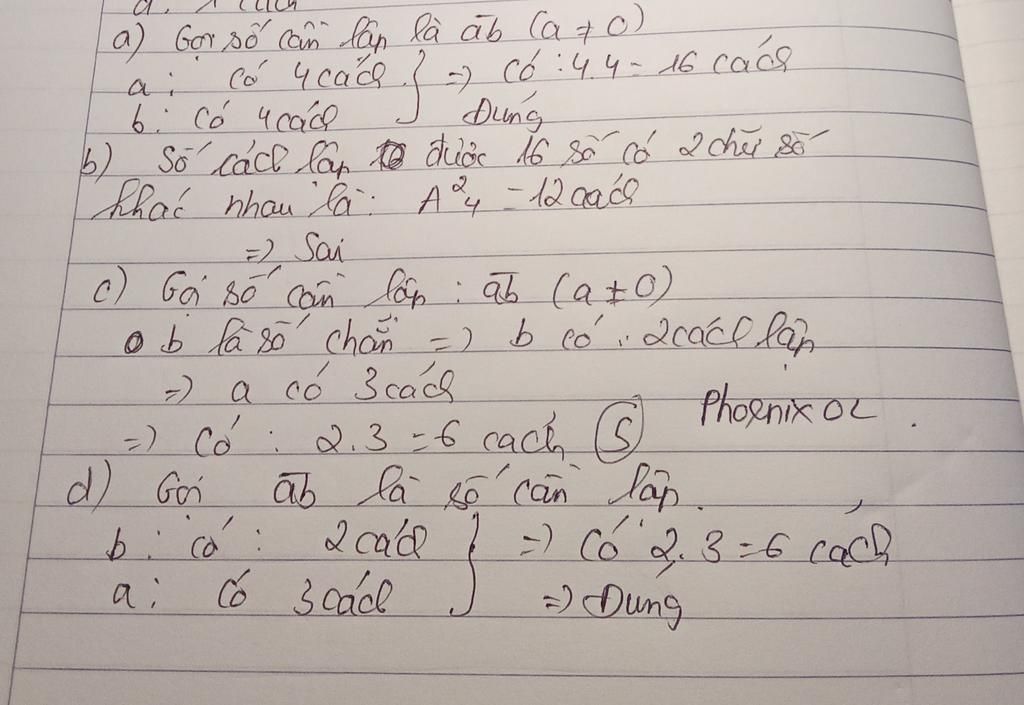 a) Gọi số cần lập là ab (a ≠ 0)
a: có 4 cách } => Có: 4.4 = 16 cách
b: có 4 cách Đúng
b) Số cách lập được 16 số có 2 chữ số
khác nhau là: A²₄ = 12 cách
=> Sai
c) Gọi số cần lập: ab (a ≠ 0)
b là số chẵn => b có: 2 cách lập
=> a có 3 cách
=> Có: 2.3 = 6 cách (S) Phoenix OL
d) Gọi ab là số cần lập.
b: có: 2 cách } => Có 2.3 = 6 cách
a: có 3 cách => Đúng